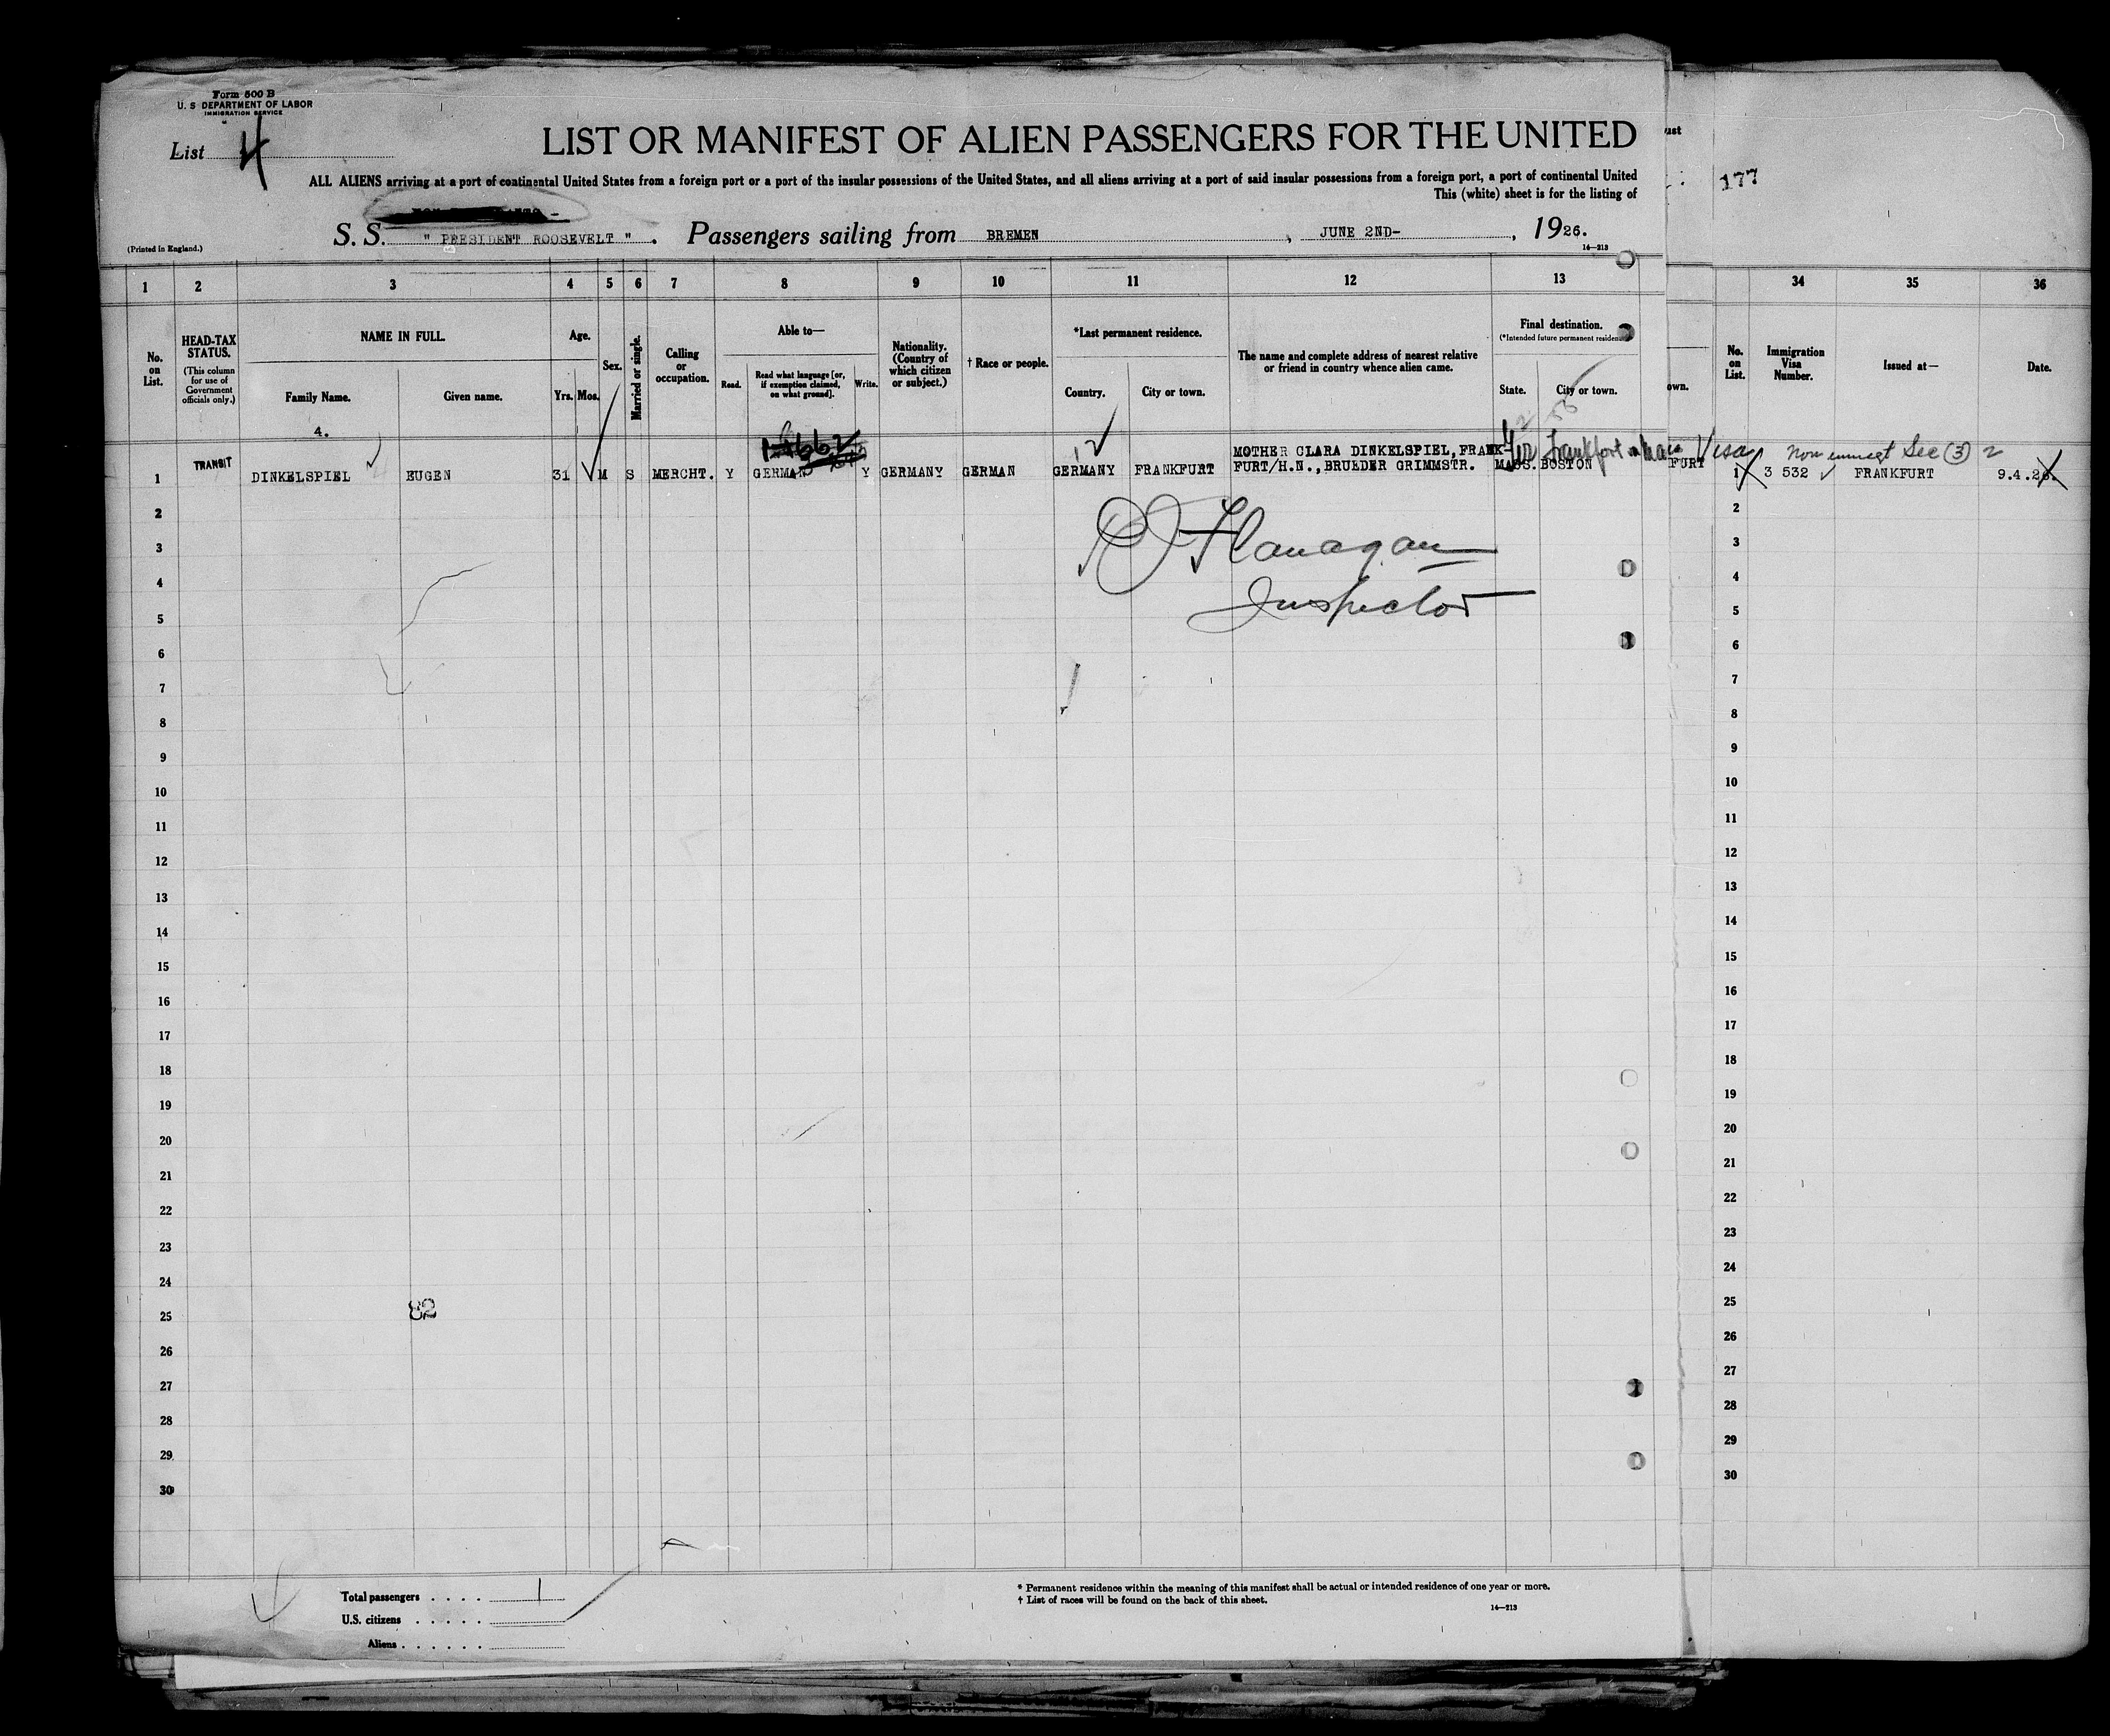 Form 500 B
U. S DEPARTMENT OF LABOR
IMMIGRATION SERVICE
List 4
LIST OR MANIFEST OF ALIEN PASSENGERS FOR THE UNITED
ALL ALIENS arriving at a port of continental United States from a foreign port or a port of the insular possessions of the United States, and all aliens arriving at a port of said insular possessions from a foreign port, a port of continental United
This (white) sheet is for the listing of
177
(Printed in England.)
S. S. " PRESIDENT ROOSEVELT " . Passengers sailing from BREMEN , JUNE 2ND- , 1926.
14—213
1 2 3 4 5 6 7 8 9 10 11 12 13 34 35 36
No. on List.
HEAD-TAX STATUS.
(This column for use of Government officials only.)
NAME IN FULL.
Family Name. Given name.
4.
Age.
Yrs. Mos.
Sex.
Married or single.
Calling or occupation.
Able to—
Read. Read what language [or, if exemption claimed, on what ground]. Write.
Nationality. (Country of which citizen or subject.)
† Race or people.
*Last permanent residence.
Country. City or town.
The name and complete address of nearest relative or friend in country whence alien came.
Final destination.
(*Intended future permanent residence
State. City or town.
own.
No. on List.
Immigration Visa Number.
Issued at—
Date.
TRANSIT
1 DINKELSPIEL EUGEN 31 M S MERCHT. Y GERMAN Y GERMANY GERMAN GERMANY FRANKFURT
MOTHER CLARA DINKELSPIEL, FRANK-
FURT/H.N., BRUEDER GRIMMSTR. MASS. BOSTON
Frankfort Visa
FURT
Non immigt Sec (3) 2
1 3 532 FRANKFURT 9.4.26.
Flanagan
Inspector
2
3
4
5
6
7
8
9
10
11
12
13
14
15
16
17
18
19
20
21
22
23
24
25
26
27
28
29
30
82
2
3
4
5
6
7
8
9
10
11
12
13
14
15
16
17
18
19
20
21
22
23
24
25
26
27
28
29
30
Total passengers . . . . 1
U.S. citizens . . . . .
Aliens . . . . . .
* Permanent residence within the meaning of this manifest shall be actual or intended residence of one year or more.
† List of races will be found on the back of this sheet.
14—213